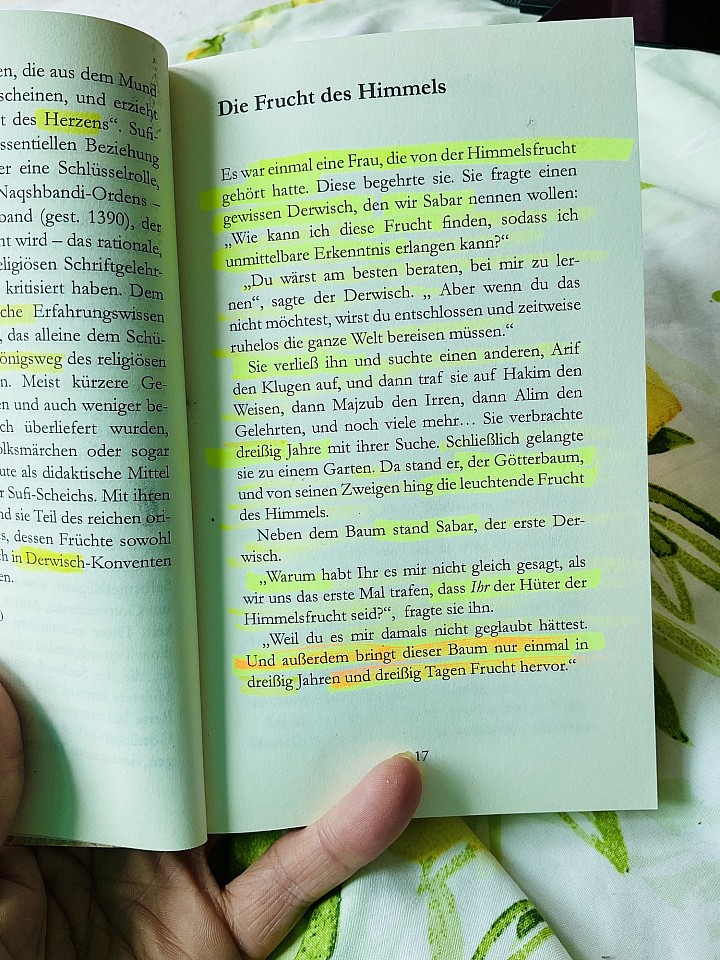 en, die aus dem Mund
scheinen, und erzieht
t des Herzens“. Sufi-
ssentiellen Beziehung
er eine Schlüsselrolle,
Naqshbandi-Ordens –
band (gest. 1390), der
nt wird – das rationale,
eligiösen Schriftgelehr-
kritisiert haben. Dem
che Erfahrungswissen
, das alleine dem Schü-
önigsweg des religiösen
n. Meist kürzere Ge-
en und auch weniger be-
ch überliefert wurden,
olksmärchen oder sogar
ute als didaktische Mittel
r Sufi-Scheichs. Mit ihren
nd sie Teil des reichen ori-
s, dessen Früchte sowohl
ch in Derwisch-Konventen
en.
Die Frucht des Himmels
Es war einmal eine Frau, die von der Himmelsfrucht
gehört hatte. Diese begehrte sie. Sie fragte einen
gewissen Derwisch, den wir Sabar nennen wollen:
„Wie kann ich diese Frucht finden, sodass ich
unmittelbare Erkenntnis erlangen kann?“
„Du wärst am besten beraten, bei mir zu ler-
nen“, sagte der Derwisch. „ Aber wenn du das
nicht möchtest, wirst du entschlossen und zeitweise
ruhelos die ganze Welt bereisen müssen.“
Sie verließ ihn und suchte einen anderen, Arif
den Klugen auf, und dann traf sie auf Hakim den
Weisen, dann Majzub den Irren, dann Alim den
Gelehrten, und noch viele mehr… Sie verbrachte
dreißig Jahre mit ihrer Suche. Schließlich gelangte
sie zu einem Garten. Da stand er, der Götterbaum,
und von seinen Zweigen hing die leuchtende Frucht
des Himmels.
Neben dem Baum stand Sabar, der erste Der-
wisch.
„Warum habt Ihr es mir nicht gleich gesagt, als
wir uns das erste Mal trafen, dass Ihr der Hüter der
Himmelsfrucht seid?“, fragte sie ihn.
„Weil du es mir damals nicht geglaubt hättest.
Und außerdem bringt dieser Baum nur einmal in
dreißig Jahren und dreißig Tagen Frucht hervor.“
17